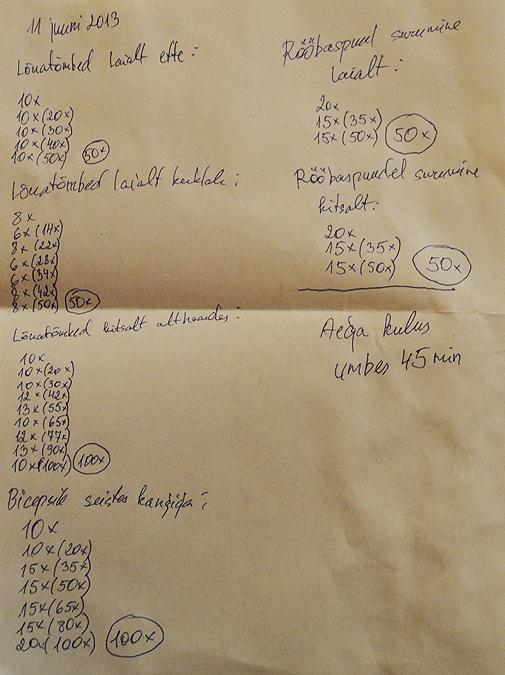 11 juuni 2013
Lõuatõmbed laialt ette:
10x
10x(20x)
10x(30x)
10x(40x)
10x(50x) 50x
Lõuatõmbed laialt kuklale:
8x
6x(14x)
8x(22x)
6x(28x)
6x(34x)
8x(42x)
8x(50x) 50x
Lõuatõmbed kitsalt althaardes:
10x
10x(20x)
10x(30x)
12x(42x)
13x(55x)
10x(65x)
12x(77x)
13x(90x)
10x(100x) 100x
Bicepsile seistes kangiga:
10x
10x(20x)
15x(35x)
15x(50x)
15x(65x)
15x(80x)
20x(100x) 100x
Rööbaspuudel surumine
laialt:
20x
15x(35x)
15x(50x) 50x
Rööbaspuudel surumine
kitsalt:
20x
15x(35x)
15x(50x) 50x
Aega kulus
umbes 45 min